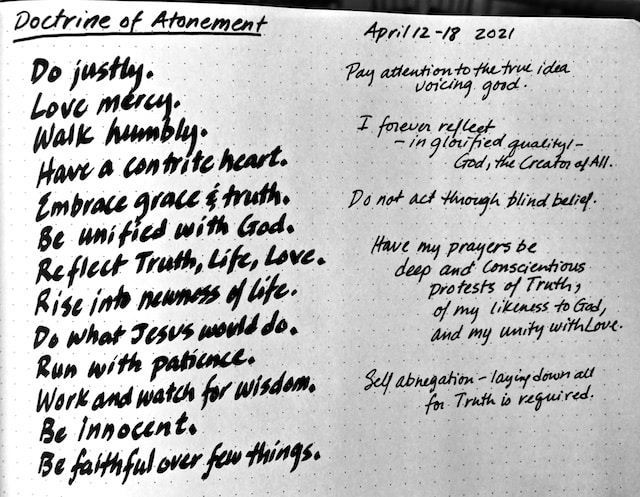 Doctrine of Atonement
Do justly.
Love mercy.
Walk humbly.
Have a contrite heart.
Embrace grace & truth.
Be unified with God.
Reflect Truth, Life, Love.
Rise into newness of life.
Do what Jesus would do.
Run with patience.
Work and watch for wisdom.
Be innocent.
Be faithful over few things.
April 12-18 2021
Pay attention to the true idea
voicing good.
I forever reflect
- in glorified quality -
God, the Creator of All.
Do not act through blind belief.
Have my prayers be
deep and conscientious
protests of Truth,
of my likeness to God,
and my unity with Love.
Self abnegation - laying down all
for Truth is required.